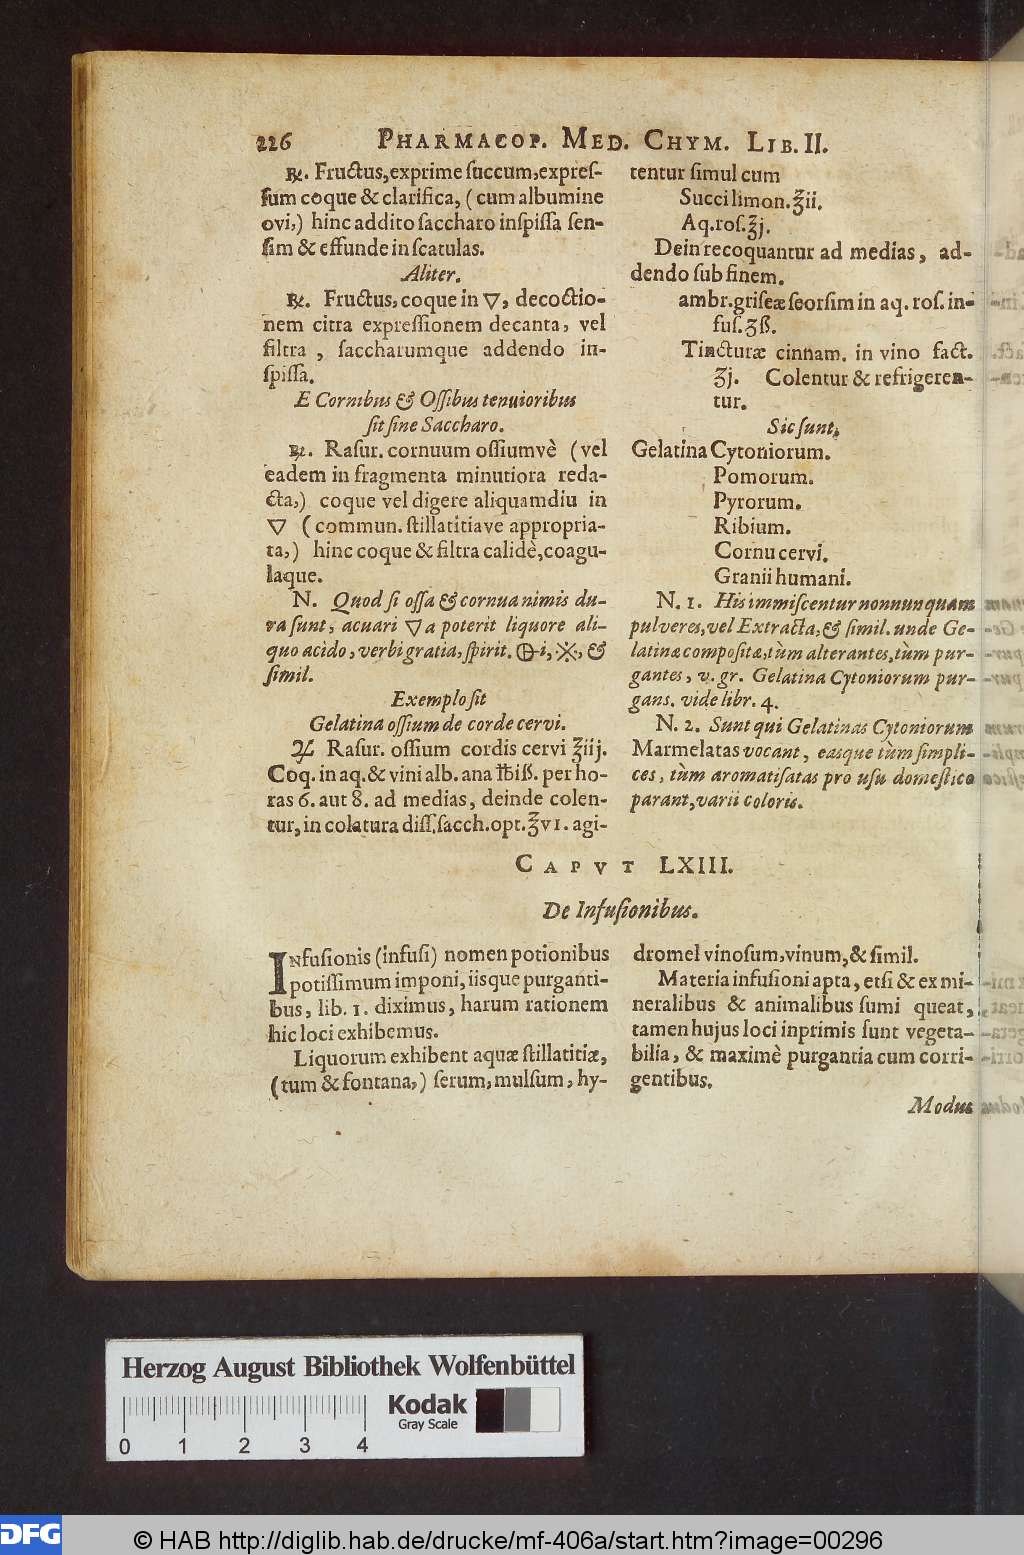 226 PHARMACOP. MED. CHYM. LIB. II.
℞. Fructus, exprime succum, expres-
sum coque & clarifica, (cum albumine
ovi,) hinc addito saccharo inspissa sen-
sim & effunde in scatulas.
Aliter.
℞. Fructus, coque in 🜄, decoctio-
nem citra expressionem decanta, vel
filtra, saccharumque addendo in-
spissa.
E Cornibus & Ossibus tenuioribus
sit sine Saccharo.
℞. Rasur. cornuum ossiumvè (vel
eadem in fragmenta minutiora reda-
cta,) coque vel digere aliquamdiu in
🜄 (commun. stillatitiave appropria-
ta,) hinc coque & filtra calidè, coagu-
laque.
N. Quod si ossa & cornua nimis du-
ra sunt, acuari 🜄 a poterit liquore ali-
quo acido, verbi gratia, spirit. 🜖i, ※, &
simil.
Exemplo sit
Gelatina ossium de corde cervi.
♃ Rasur. ossium cordis cervi ℥iij.
Coq. in aq. & vini alb. ana ℔iß. per ho-
ras 6. aut 8. ad medias, deinde colen-
tur, in colatura diss. sacch. opt. ℥vi. agi-
tentur simul cum
Succi limon. ℥ii.
Aq. ros. ℥j.
Dein recoquantur ad medias, ad-
dendo sub finem.
ambr. griseæ seorsim in aq. ros. in-
fus. ʒß.
Tincturæ cinnam. in vino fact.
℥j. Colentur & refrigeren-
tur.
Sic sunt,
Gelatina Cytoniorum.
Pomorum.
Pyrorum.
Ribium.
Cornu cervi.
Granii humani.
N. 1. His immiscentur nonnunquam
pulveres, vel Extracta, & simil. unde Ge-
latinæ compositæ, tùm alterantes, tùm pur-
gantes, v. gr. Gelatina Cytoniorum pur-
gans. vide libr. 4.
N. 2. Sunt qui Gelatinas Cytoniorum
Marmelatas vocant, easque tùm simpli-
ces, tùm aromatisatas pro usu domestico
parant, varii coloris.
CAPVT LXIII.
De Infusionibus.
INfusionis (infusi) nomen potionibus
potissimum imponi, iisque purganti-
bus, lib. 1. diximus, harum rationem
hic loci exhibemus.
Liquorum exhibent aquæ stillatitiæ,
(tum & fontana,) serum, mulsum, hy-
dromel vinosum, vinum, & simil.
Materia infusioni apta, etsi & ex mi-
neralibus & animalibus sumi queat,
tamen hujus loci inprimis sunt vegeta-
bilia, & maximè purgantia cum corri-
gentibus.
Modus
Herzog August Bibliothek Wolfenbüttel
Kodak
Gray Scale
0 1 2 3 4
DFG
© HAB http://diglib.hab.de/drucke/mf-406a/start.htm?image=00296